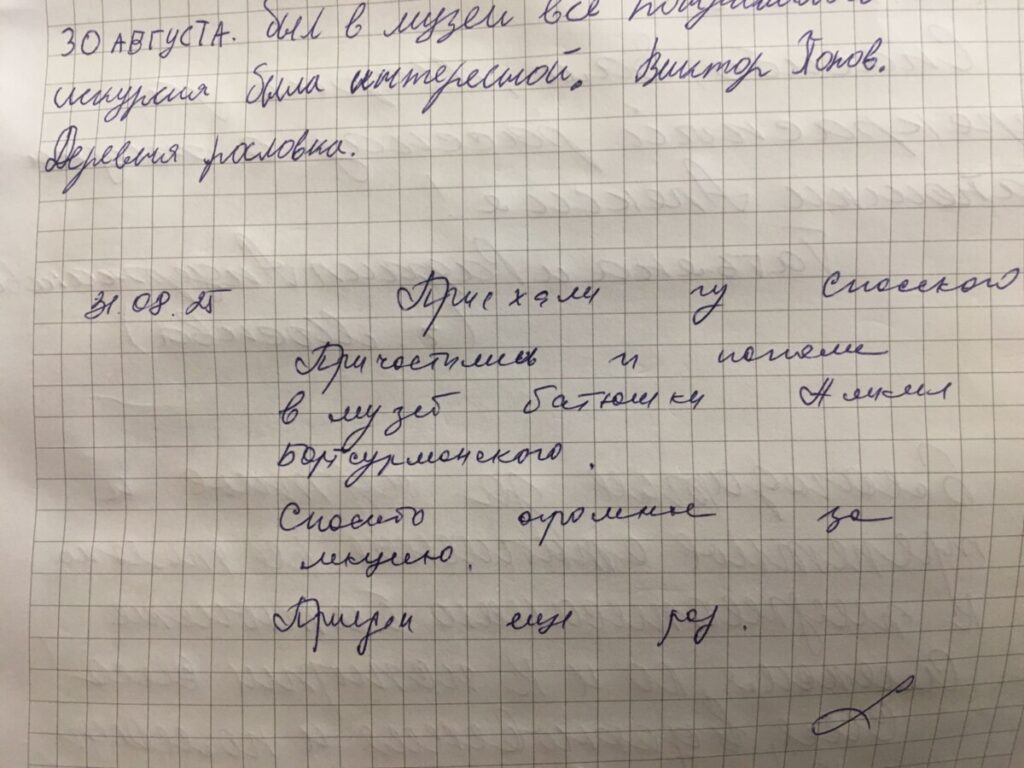 30 АВГУСТА. был в музеи все
искурсия была интересной. Виктор Попов.
Деревня рословка.
31.08.25 Приехали из Спасского
Причастились и попали
в музей батюшки
Бортсурманского.
Спасибо огромное за
лекцию.
Приедем еще раз.